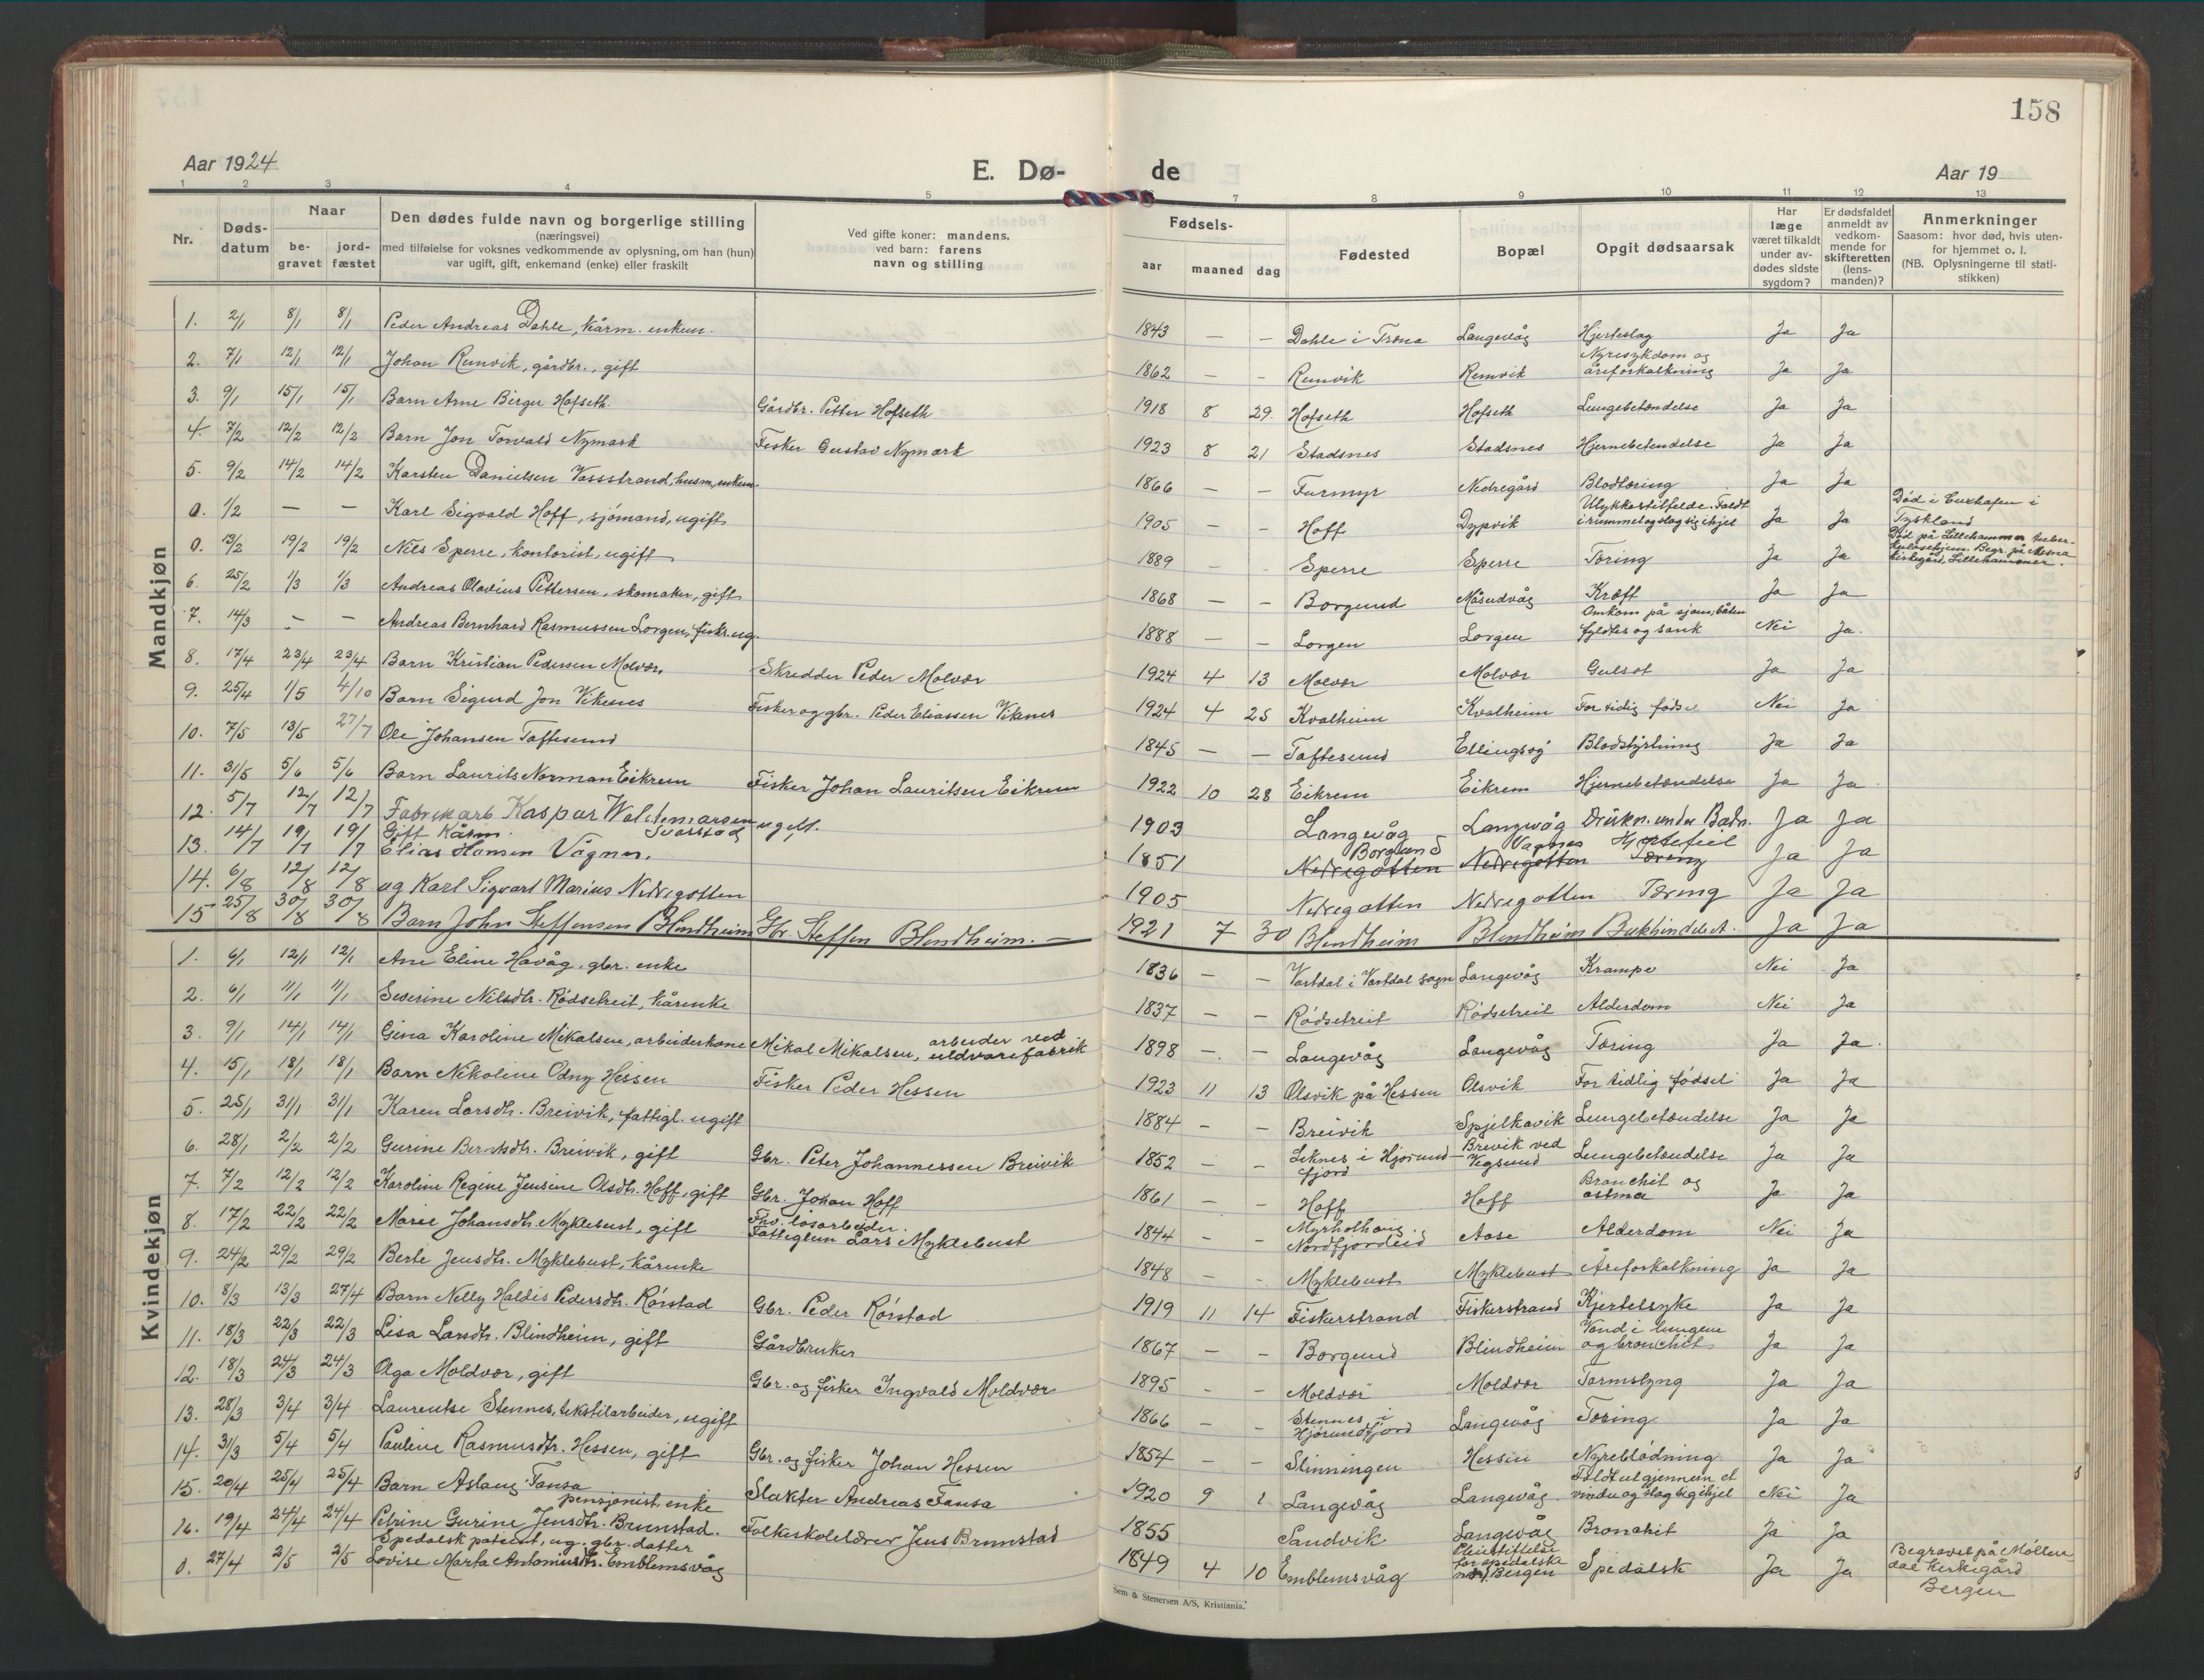 158
Aar 1924 E. Dø- de Aar 19
1 2 3 4 5 7 8 9 10 11 12 13
Nr.
Døds-
datum
Naar
be-
gravet
jord-
fæstet
Den dødes fulde navn og borgerlige stilling
(næringsvei)
med tilføielse for voksnes vedkommende av oplysning, om han (hun)
var ugift, gift, enkemand (enke) eller fraskilt
Ved gifte koner: mandens,
ved barn: farens
navn og stilling
Fødsels-
aar maaned dag
Fødested
Bopæl
Opgit dødsaarsak
Har
læge
været tilkaldt
under av-
dødes sidste
sygdom?
Er dødsfaldet
anmeldt av
vedkom-
mende for
skifteretten
(lens-
manden)?
Anmerkninger
Saasom: hvor død, hvis uten-
for hjemmet o. l.
(NB. Oplysningerne til stati-
stikken)
Mandkjøn
1. 2/1 8/1 8/1 Peder Andreas Dahle, kårm. enkem. 1843 — — Dahle i Langevåg Hjerteslag Ja Ja
2. 7/1 12/1 12/1 Johan Remvik, gårdbr., gift 1862 — — Remvik Remvik Nyresykdom og
åreforkalkning Ja Ja
3. 9/1 15/1 15/1 Barn Arne Birger Hofseth. Gårdbr. Petter Hofseth 1918 8 29. Hofseth Hofseth Lungebetændelse Ja Ja
4. 7/2 12/2 12/2 Barn Jon Torvald Nymark Fisker Gustav Nymark 1923 8 21 Stadsnes Stadsnes Hjernebetendelse Ja Ja
5. 9/2 14/2 14/2 Karsten Danielsen Vassstrand, husm, enkem. 1866 — — Furmyr Nedregård Blodtæring Ja Ja
0. 1/2 — — Karl Sigvald Hoff, sjömand, ugift 1905 — — Hoff Dypvik Ulykkestilfelde. Faldt
i rummet og slog sig ihjel Ja Ja Död i Cuxhafen i
Tyskland
0. 13/2 19/2 19/2 Nils Sperre, kontorist, ugift 1889 — — Sperre Sperre Tæring Ja Ja Död på Lillehammer tuber-
kulosehjem. Begr. på Mesna
kirkegård, Lillehammer.
6. 25/2 1/3 1/3 Andreas Olavius Pettersen, skomaker, gift 1868 — — Borgund Måseidvåg Kræft Ja Ja
7. 14/3 — — Andreas Bernhard Rasmussen Lorgen, fiskr. ug. 1888 — — Lorgen Lorgen Omkom på sjøen; båten
fyldtes og sank Nei Ja.
8. 17/4 23/4 23/4 Barn Kristian Pedersen Molvær. Skredder Peder Molvær 1924 4 13 Molvær Molvær Gulsot Ja Ja
9. 25/4 1/5 4/10 Barn Sigurd Jon Viknes Fisker og gbr. Peder Eliassen Viknes 1924 4 25 Kvalheim Kvalheim For tidig födsel Nei Ja
10. 7/5 13/5 27/7 Ole Johansen Taftesund 1845 — — Taftesund Ellingsøy Blodstyrtning Ja Ja
11. 31/5 5/6 5/6 Barn Laurits Norman Eikrem Fisker Johan Lauritsen Eikrem 1922 10 28 Eikrem Eikrem Hjernebetændelse Ja Ja
12. 5/7 12/7 12/7 Fabrikarb Kaspar Waldemarsen Svorstad ugift. 1903 Langevåg Langevåg Drukn. under Badn. Ja Ja
13. 14/7 19/7 19/7 Gift Kårm.
Elias Hansen Vågnes. 1851 Borgund
Nedregotten Vagnes
Nedregotten Hjertefeil
Tæring Ja Ja
14. 6/8 12/8 12/8 ug Karl Sigvart Marius Nedregotten 1905 Nedregotten Nedregotten Tæring Ja Ja
15 25/8 30/8 30/8 Barn John Steffensen Blindheim Gbr. Steffen Blindheim. — 1921 7 30 Blindheim Blindheim Bukhindebet. Ja Ja
Kvindekjøn
1. 6/1 12/1 12/1 Ane Eline Havåg, gbr. enke 1836 — — Vartdal i Vartdal sogn Langevåg Krampe Nei Ja
2. 6/1 11/1 11/1 Severine Nilsdtr. Rødsetreit, kårenke 1837 — — Rødsetreit Rødsetreit Alderdom Nei Ja
3. 9/1 14/1 14/1 Gina Karoline Mikalsen, arbeiderkone Mikal Mikalsen, arbeider ved
uldvarefabrik 1898 — — Langevåg Langevåg Tæring Ja Ja.
4. 15/1 18/1 18/1 Barn Nikoline Odny Hessen Fisker Peder Hessen 1923 11 13 Olsvik på Hessen Olsvik For tidlig fødsel Ja Ja
5. 25/1 31/1 31/1 Karen Larsdtr. Breivik, fattigl. ugift 1884 — — Breivik Spjelkavik Lungebetændelse Ja Ja
6. 28/1 2/2 2/2 Gurine Berntsdtr. Breivik, gift Gbr. Peter Johannessen Breivik 1852 — — Leknes i Hjørund-
fjord Breivik ved
Vegsund Lungebetændelse Ja Ja
7. 7/2 12/2 12/2 Karoline Regine Jensine Olsdtr. Hoff, gift Gbr. Johan Hoff 1861 — — Hoff Hoff Bronchit og
astma Ja Ja
8. 17/2 22/2 22/2 Marie Johansdtr. Myklebust, gift Fhv. løsarbeider.
Fattiglem Lars Myklebust 1844 — — Myrholhaug.
Nordfjordeid Aase Alderdom Nei Ja
9. 24/2 29/2 29/2 Berte Jensdtr. Myklebust, kårenke 1848 — — Myklebust Myklebust Åreforkalkning Ja Ja
10. 8/3 13/3 27/4 Barn Nelly Haldis Pedersdtr. Rørstad Gbr. Peder Rørstad 1919 11 14 Fiskerstrand Fiskerstrand Kjertelsyke Ja Ja
11. 18/3 22/3 22/3 Lisa Larsdtr. Blindheim, gift Gårdbruker 1867 — — Borgund Blindheim Vand i lungene
og bronchit Ja Ja
12. 18/3 24/3 24/3 Olga Moldvær, gift Gbr. og fisker Ingvald Moldvær 1895 — — Moldvær Moldvær Tarmslyng Ja Ja
13. 28/3 3/4 3/4 Laurentse Stennes, tekstilarbeider, ugift 1866 — — Stennes i
Hjørundfjord Langevåg Tæring Ja Ja
14. 31/3 5/4 5/4 Pauline Rasmusdtr. Hessen, gift Gbr. og fisker Johan Hessen 1854 — — Slinningen Hessen Nyreblødning Ja Ja
15. 20/4 25/4 25/4 Barn Aslaug Fansa Slakter Andreas Fansa 1920 9 1 Langevåg Langevåg Faldt ut gjennem et
vindu og slog sig ihjel Nei Ja
16. 19/4 24/4 24/4 pensjonist, enke
Petrine Gurine Jensdtr. Brunstad. Folkeskolelærer Jens Brunstad 1855 Sandvik Langevåg Bronchit Ja Ja
0. 27/4 2/5 2/5 Spedalsk patient, ug. gbr. datter
Lovise Marta Antoniusdtr. Emblemsvåg 1849 4 10 Emblemsvåg Pleiestiftelse
for spedalske
Bergen Spedalsk Ja Ja Begravet på Møllen-
dal kirkegård
Bergen
Sem & Stenersen A/S, Kristiania.